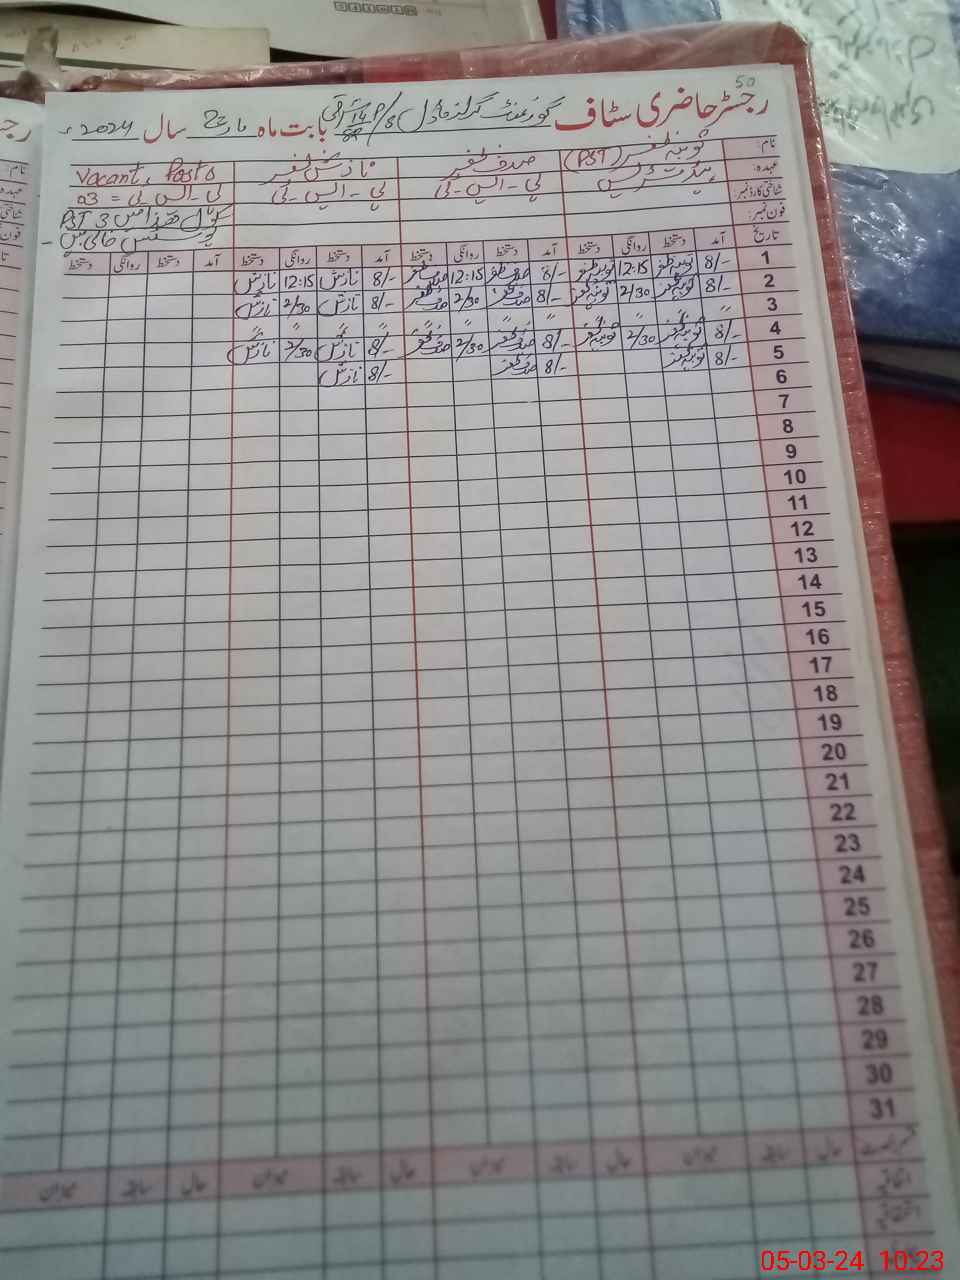 50
رجسٹر حاضری سٹاف گورنمنٹ گرلز ماڈل بابت ماہ مارچ سال 2024ء
نام: ثوبیہ ظفر (PST) صدف ظفر نازش ظفر Vacant Posts
عہدہ: ہیڈ مسٹریس پی-ایس-ٹی پی-ایس-ٹی پی-ایس-ٹی = 03
شناختی کارڈ نمبر: PST 3
فون نمبر:
تاریخ آمد دستخط روانگی دستخط آمد دستخط روانگی دستخط آمد دستخط روانگی دستخط آمد دستخط روانگی دستخط
1 8/- ثوبیہ ظفر 12:15 ثوبیہ ظفر 8/- صدف ظفر 12:15 صدف ظفر 8/- نازش 12:15 نازش
2 8/- ثوبیہ ظفر 2/30 ثوبیہ ظفر 8/- صدف ظفر 2/30 صدف ظفر 8/- نازش 2/30 نازش
3 " " " " " " " " " " " "
4 8/- ثوبیہ ظفر 2/30 ثوبیہ ظفر 8/- صدف ظفر 2/30 صدف ظفر 8/- نازش 2/30 نازش
5 8/- ثوبیہ ظفر 8/- صدف ظفر 8/- نازش
6
7
8
9
10
11
12
13
14
15
16
17
18
19
20
21
22
23
24
25
26
27
28
29
30
31
حال سابقہ میزان حال سابقہ میزان حال سابقہ میزان حال سابقہ میزان
اتفاقیہ
05-03-24 10:23